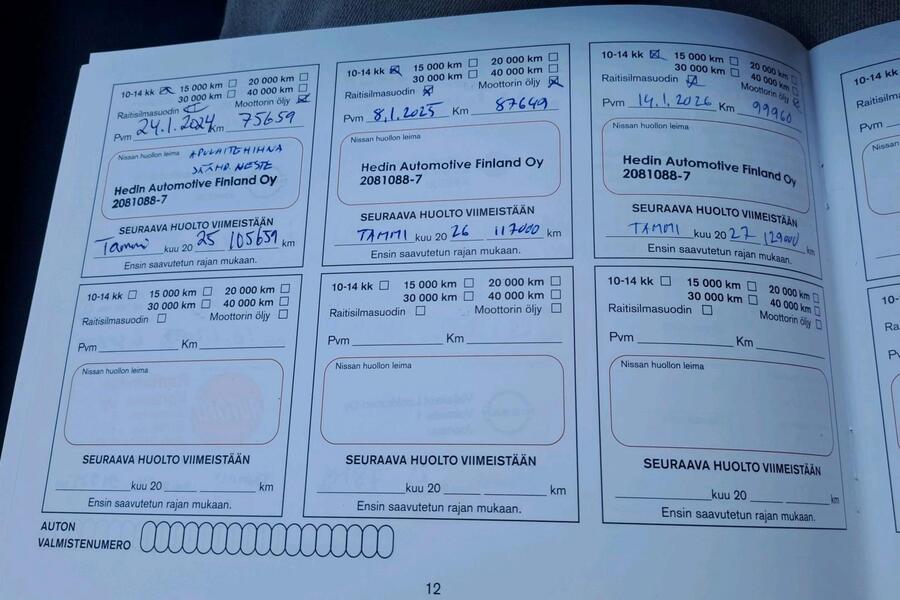 10-14 kk ☒ 15 000 km ☐ 20 000 km ☐
30 000 km ☐ 40 000 km ☐
Raitisilmasuodin ☐ Moottorin öljy ☒
Pvm 24.1.2024 Km 75659
Nissan huollon leima APULAITEHIHNA
JÄÄHD. NESTE
Hedin Automotive Finland Oy
2081088-7
SEURAAVA HUOLTO VIIMEISTÄÄN
Tammi kuu 20 25 105659 km
Ensin saavutetun rajan mukaan.
10-14 kk ☒ 15 000 km ☐ 20 000 km ☐
30 000 km ☐ 40 000 km ☐
Raitisilmasuodin ☒ Moottorin öljy ☒
Pvm 8.1.2025 Km 87649
Nissan huollon leima
Hedin Automotive Finland Oy
2081088-7
SEURAAVA HUOLTO VIIMEISTÄÄN
TAMMI kuu 20 26 117000 km
Ensin saavutetun rajan mukaan.
10-14 kk ☒ 15 000 km ☐ 20 000 km ☐
30 000 km ☐ 40 000 km ☐
Raitisilmasuodin ☒ Moottorin öljy ☒
Pvm 14.1.2026 Km 99960
Nissan huollon leima
Hedin Automotive Finland Oy
2081088-7
SEURAAVA HUOLTO VIIMEISTÄÄN
TAMMI kuu 20 27 129000 km
Ensin saavutetun rajan mukaan.
10-14 kk ☐ 15 000 km ☐ 20 000 km ☐
30 000 km ☐ 40 000 km ☐
Raitisilmasuodin ☐ Moottorin öljy ☐
Pvm Km
Nissan huollon leima
SEURAAVA HUOLTO VIIMEISTÄÄN
kuu 20 km
Ensin saavutetun rajan mukaan.
10-14 kk ☐ 15 000 km ☐ 20 000 km ☐
30 000 km ☐ 40 000 km ☐
Raitisilmasuodin ☐ Moottorin öljy ☐
Pvm Km
Nissan huollon leima
SEURAAVA HUOLTO VIIMEISTÄÄN
kuu 20 km
Ensin saavutetun rajan mukaan.
10-14 kk ☐ 15 000 km ☐ 20 000 km ☐
30 000 km ☐ 40 000 km ☐
Raitisilmasuodin ☐ Moottorin öljy ☐
Pvm Km
Nissan huollon leima
SEURAAVA HUOLTO VIIMEISTÄÄN
kuu 20 km
Ensin saavutetun rajan mukaan.
AUTON
VALMISTENUMERO
12
10-14 kk
Pvm